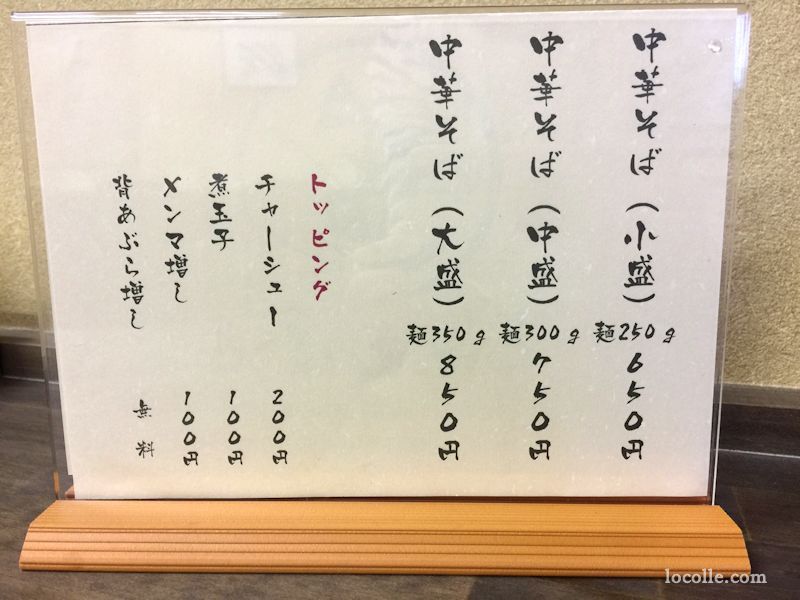 中華そば（小盛）麺250g 650円
中華そば（中盛）麺300g 750円
中華そば（大盛）麺350g 850円
トッピング
チャーシュー 200円
煮玉子 100円
メンマ増し 100円
背あぶら増し 無料
locolle.com